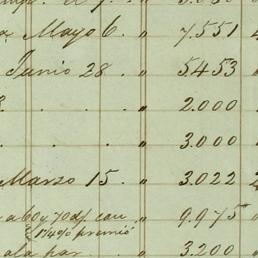 a Mayo 6. " 7.551
Junio 28 " 5453
8. . . . " 2.000
. . . " 3.000
Marzo 15. " 3.022 2
a 60 y 70 d/ con " 9.975
1/4% premió
a la par " 3.200